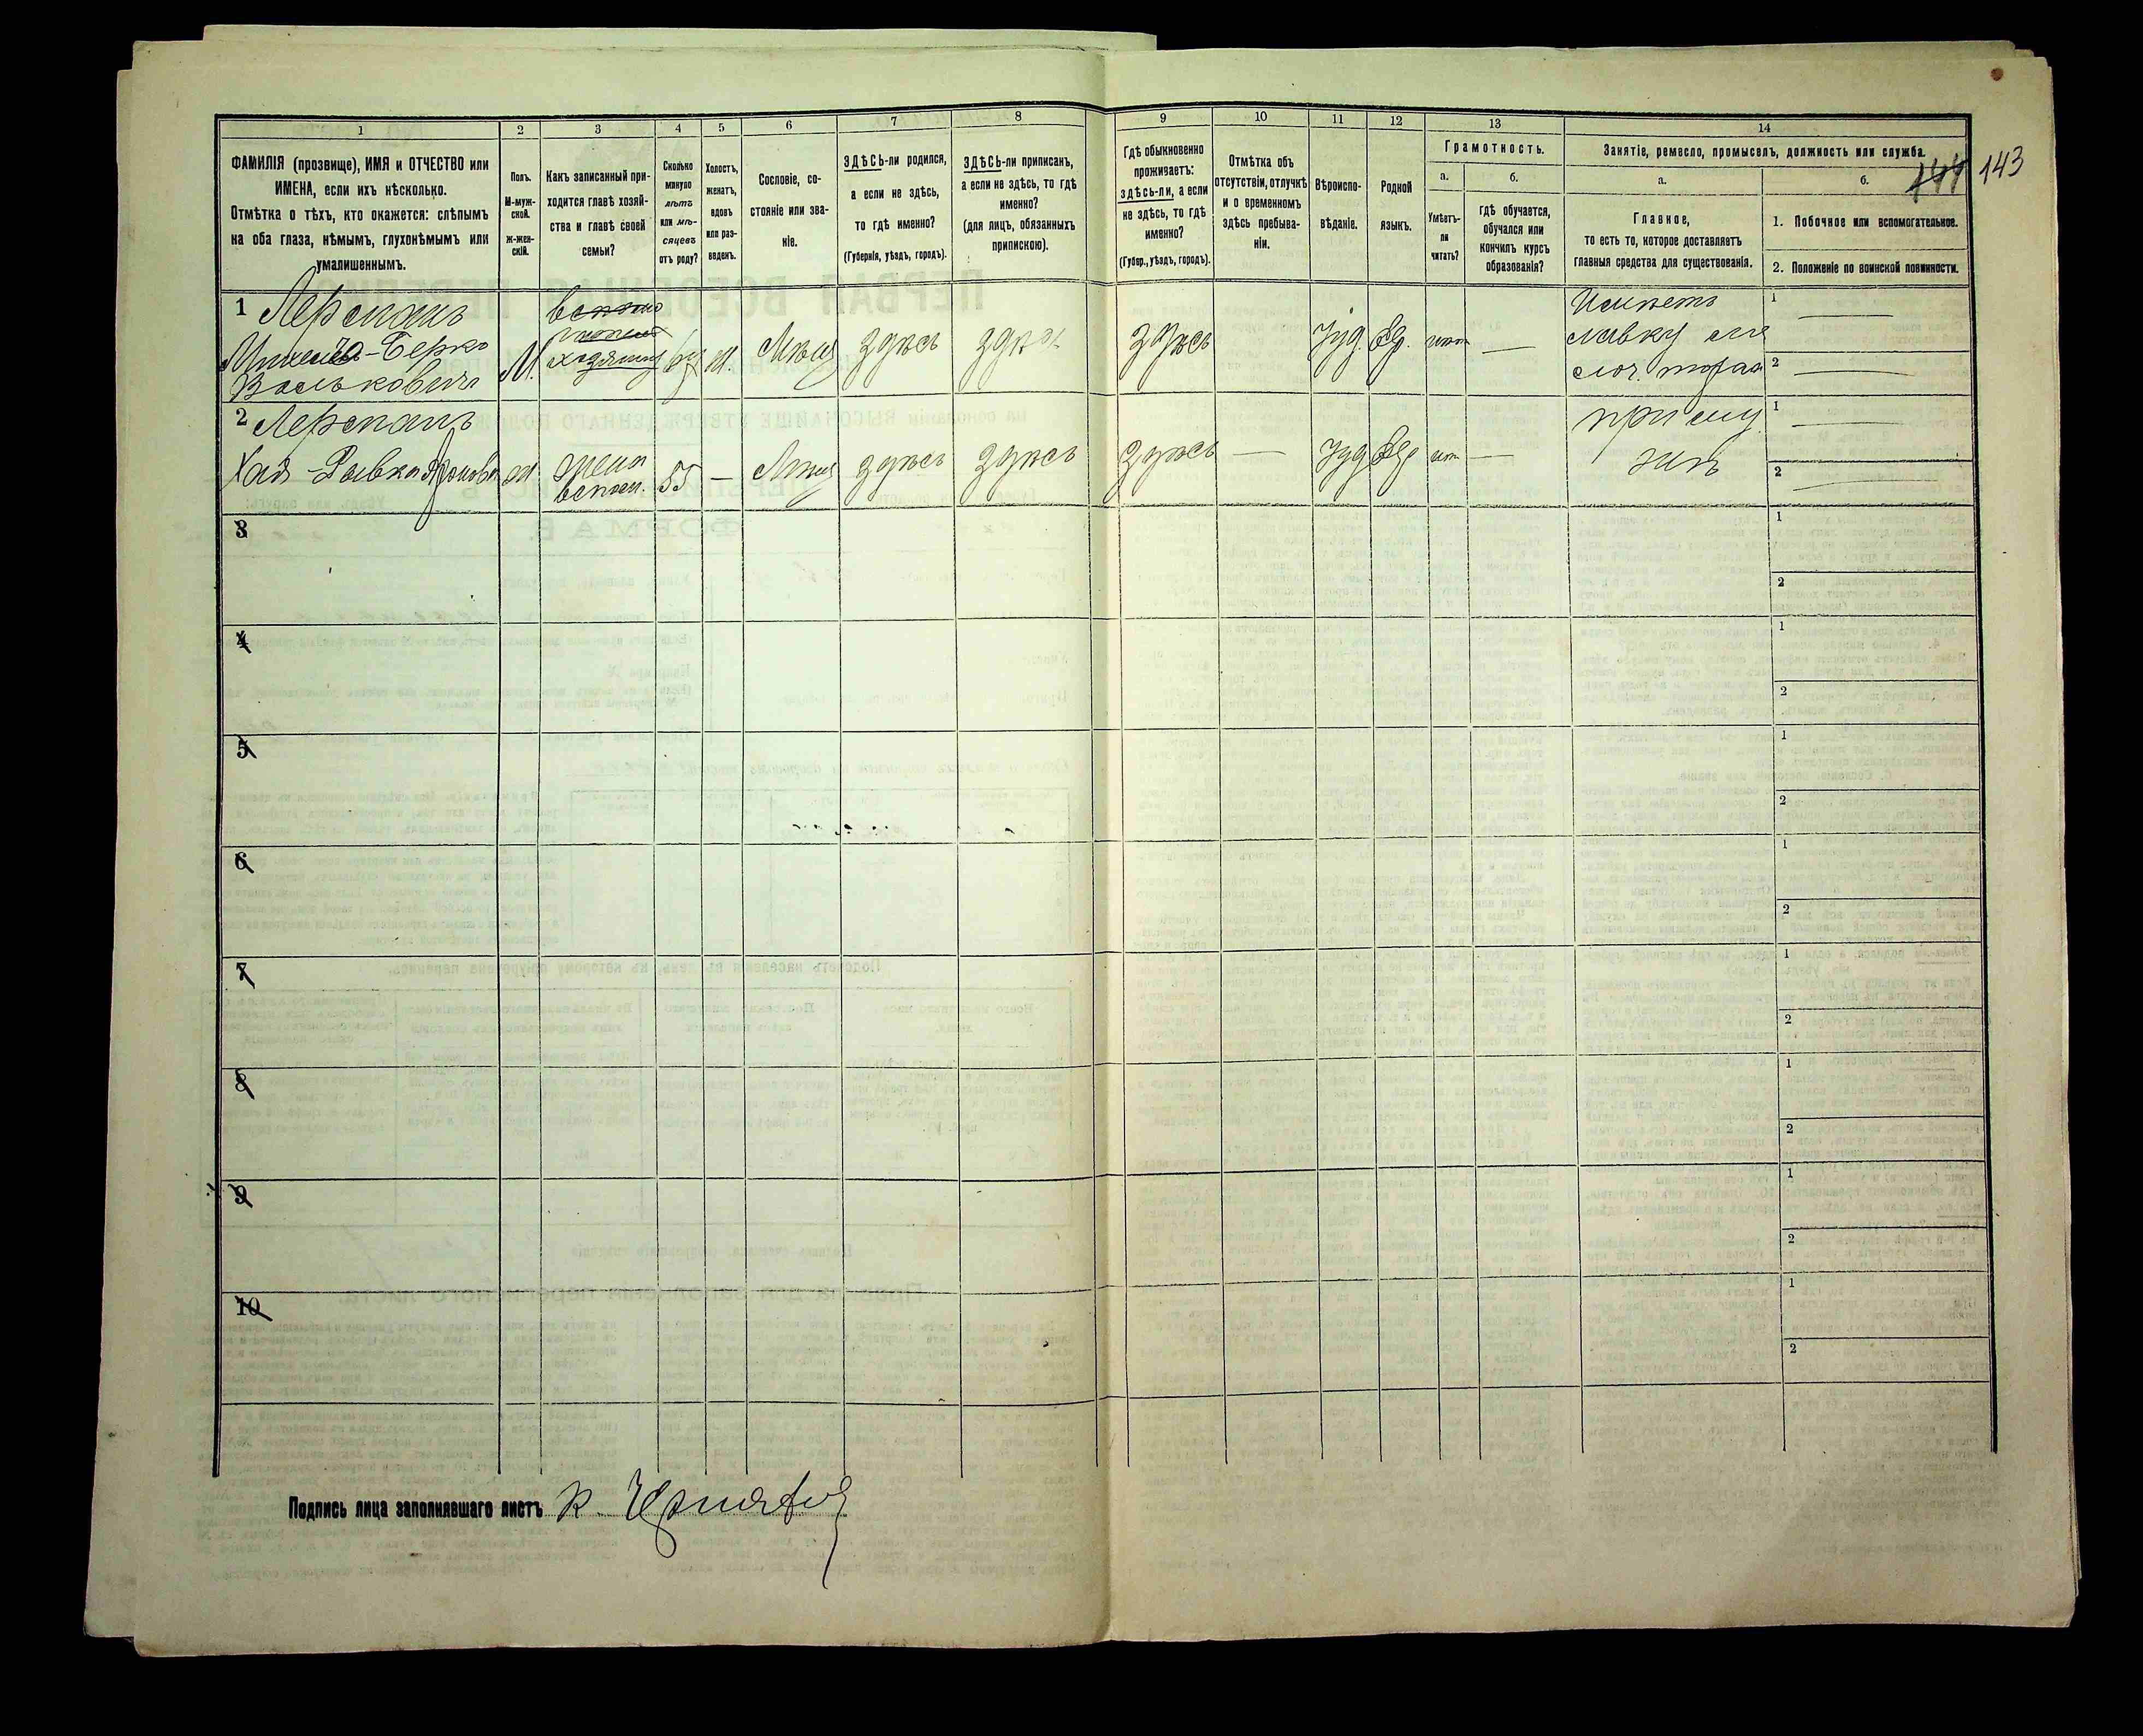 1
2
3
4
5
6
7
8
9
10
11
12
13
14
ФАМИЛІЯ (прозвище), ИМЯ и ОТЧЕСТВО или
ИМЕНА, если ихъ нѣсколько.
Отмѣтка о тѣхъ, кто окажется: слѣпымъ
на оба глаза, нѣмымъ, глухонѣмымъ или
умалишеннымъ.
Полъ.
М-муж-
ской.
Ж-жен-
скій.
Какъ записанный при-
ходится главѣ хозяй-
ства и главѣ своей
семьи?
Сколько
минуло
лѣтъ
или мѣ-
сяцевъ
отъ роду?
Холостъ,
женатъ,
вдовъ
или раз-
веденъ.
Сословіе, со-
стояніе или зва-
ніе.
ЗДѢСЬ-ли родился,
а если не здѣсь,
то гдѣ именно?
(Губернія, уѣздъ, городъ).
ЗДѢСЬ-ли приписанъ,
а если не здѣсь, то гдѣ
именно?
(для лицъ, обязанныхъ
припискою).
Гдѣ обыкновенно
проживаетъ:
здѣсь-ли, а если
не здѣсь, то гдѣ
именно?
(Губер., уѣздъ, городъ).
Отмѣтка объ
отсутствіи, отлучкѣ
и о временномъ
здѣсь пребыва-
ніи.
Вѣроиспо-
вѣданіе.
Родной
языкъ.
Грамотность.
а.
Умѣетъ-
ли
читать?
б.
Гдѣ обучается,
обучался или
кончилъ курсъ
образованія?
Занятіе, ремесло, промыселъ, должность или служба.
а.
Главное,
то есть то, которое доставляетъ
главныя средства для существованія.
б.
1. Побочное или вспомогательное.
2. Положеніе по воинской повинности.
144 143
1 Лерманъ
-Берко
Вольковичъ
М.
хозяинъ
здѣсь
здѣсь
здѣсь
Іуд.
Евр.
Имѣетъ
лавку
1
2
2 Лерманъ
Хая-Рывка
жена
55
—
здѣсь
здѣсь
здѣсь
—
Іуд
Евр
—
при му
жѣ
1
2
3
1
2
4
1
2
5
1
2
6
1
2
7
1
2
8
1
2
9
1
2
10
1
2
Подпись лица заполнявшаго листъ К.